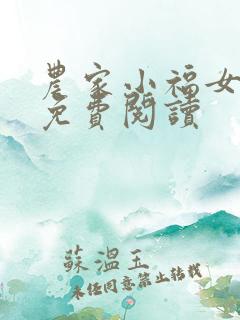 農家小福女
免費閱讀
蘇溫玉
未經同意禁止轉載